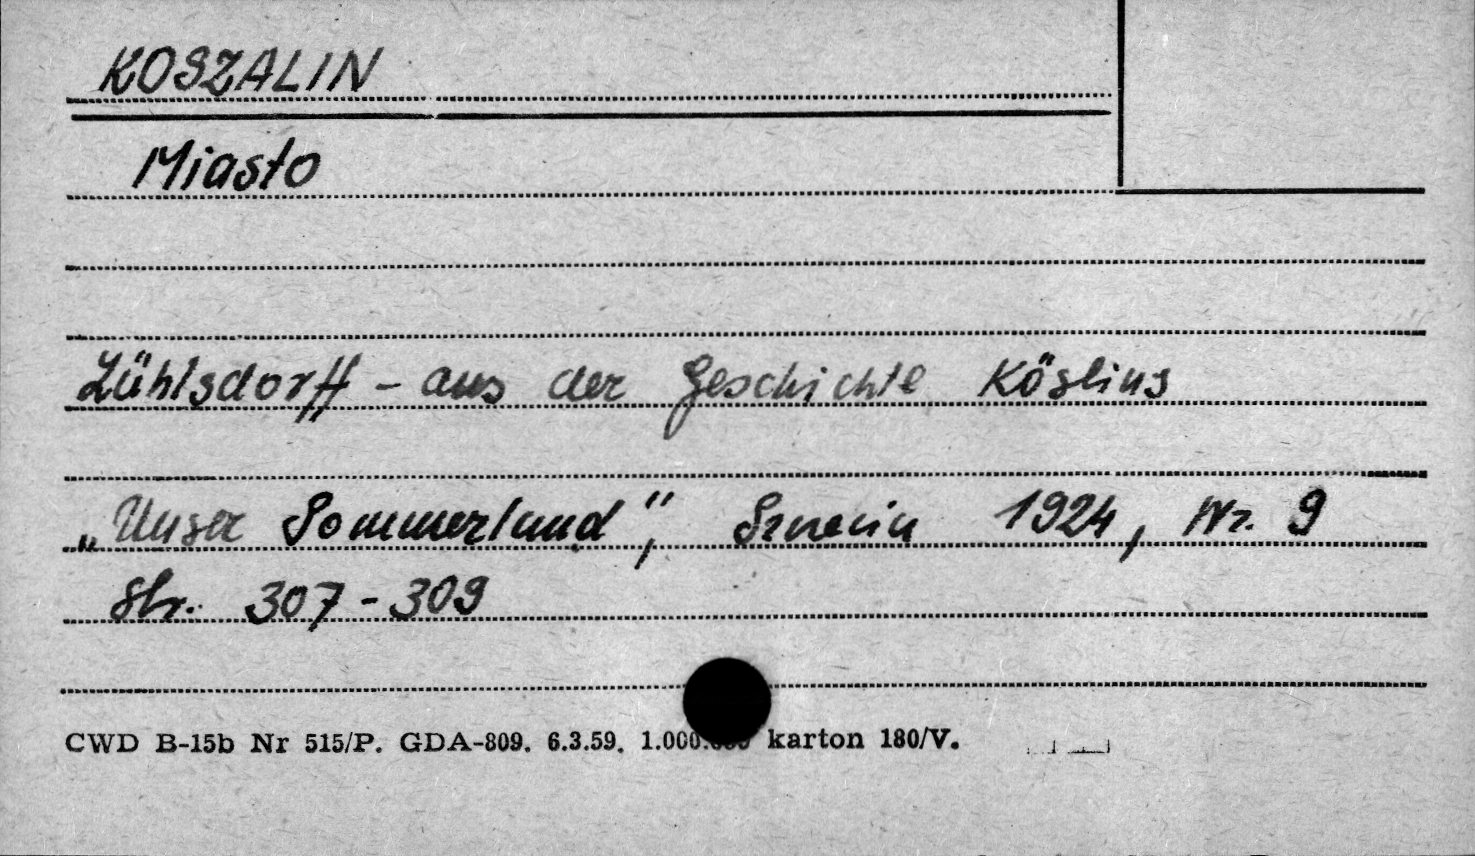 KOSZALIN
Miasto
Lühlsdorff - aus der Geschichte Köslins
„Unser Pommerland", Szczecin 1924, Nr. 9
Str. 307-309
CWD B-15b Nr 515/P. GDA-809. 6.3.59. 1.000.000 karton 180/V.